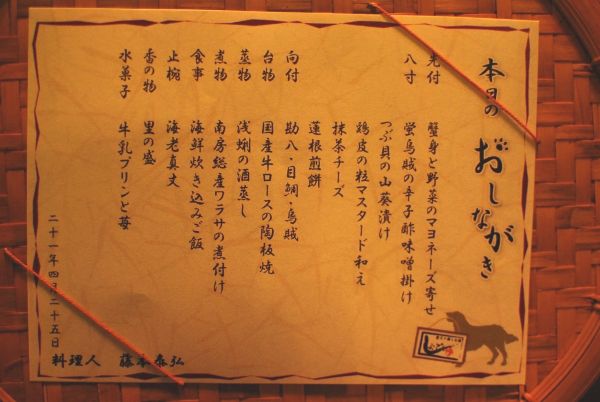 本日の おしながき
先付 蟹身と野菜のマヨネーズ寄せ
八寸 蛍烏賊の辛子酢味噌掛け
つぶ貝の山葵漬け
鶏皮の粒マスタード和え
抹茶チーズ
蓮根煎餅
向付 勘八・目鯛・烏賊
台物 国産牛ロースの陶板焼
蒸物 浅蜊の酒蒸し
煮物 南房総産ワラサの煮付け
食事 海鮮炊き込みご飯
止椀 海老真丈
香の物 里の盛
水菓子 牛乳プリンと苺
二十一年四月二十五日
料理人 藤本泰弘